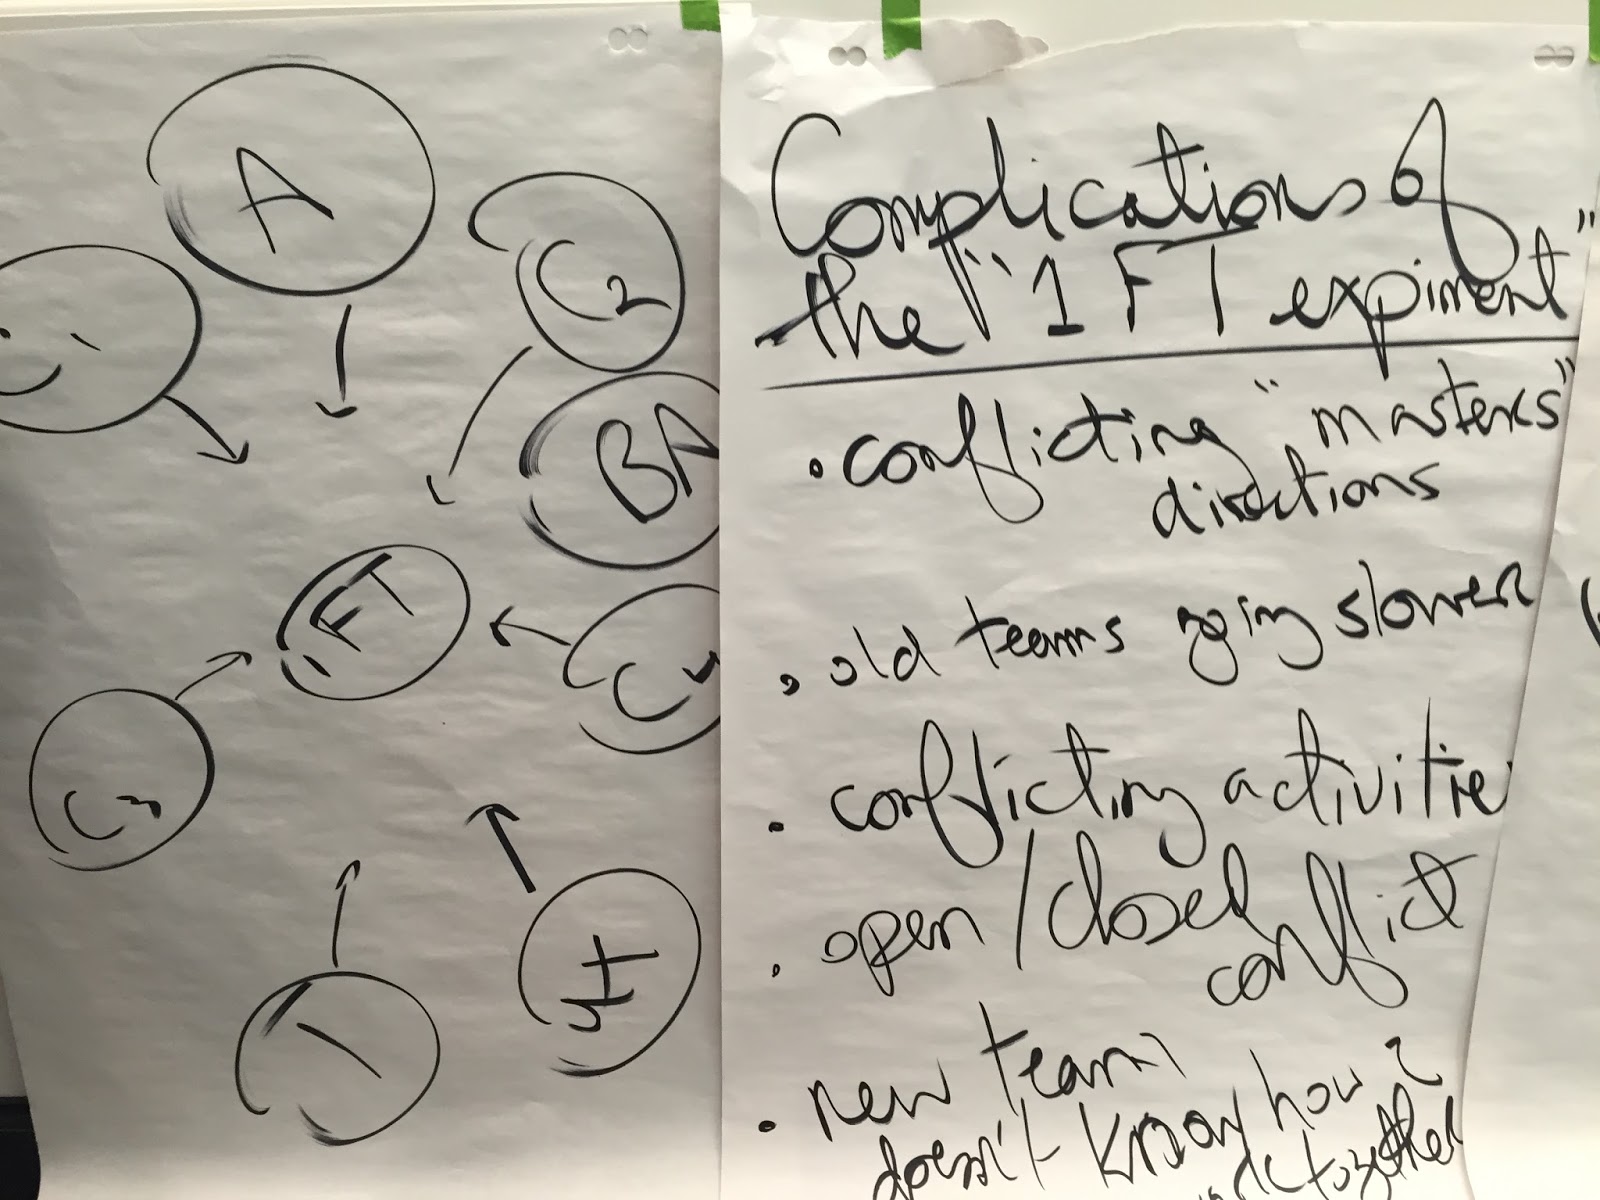 A
C2
C1
BA
FT
C4
C3
T
Complications of
the "1 FT expiment"
• conflicting "masters"
directions
• old teams going slower
• conflicting activitie
• open/closed
conflict
• new team
doesn't know how
together